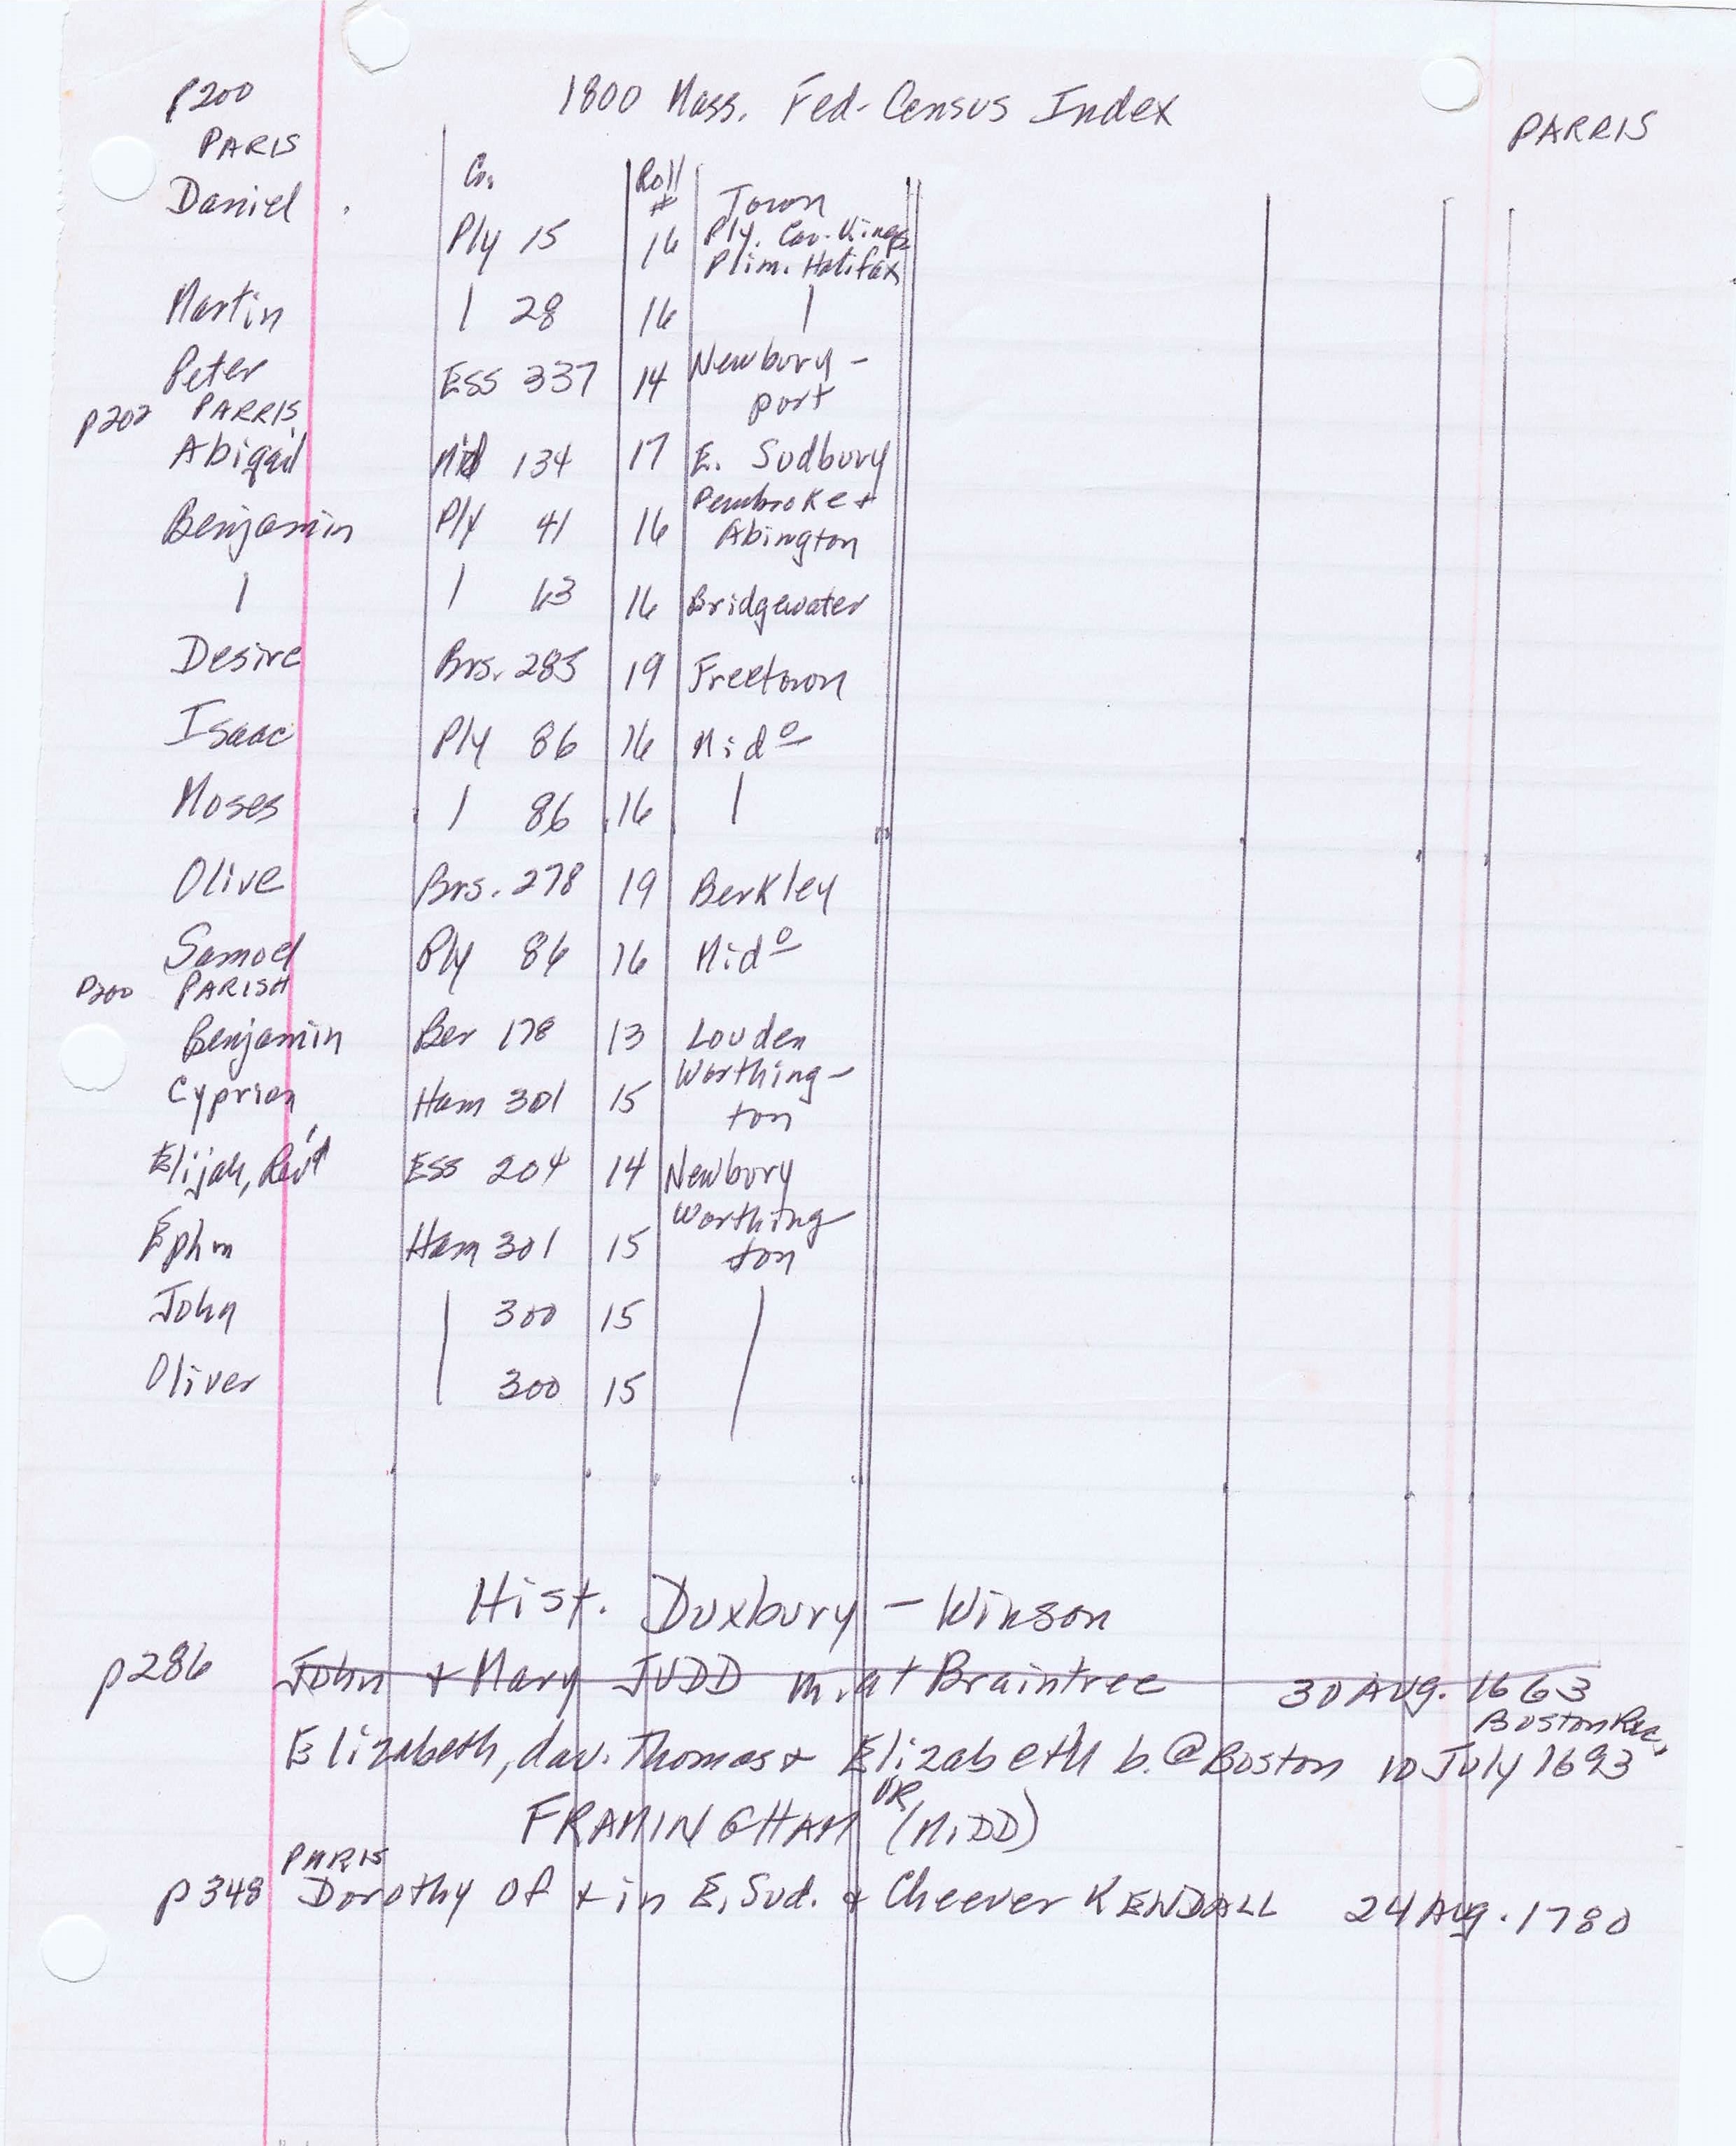 p200 1800 Mass. Fed-Census Index PARRIS
PARIS
Co. Roll # Town
Daniel Ply 15 16 Ply. Car. Kings
Plim. Halifax
Martin | 28 16 |
Peter Ess 337 14 Newbury-
port
p202 PARRIS
Abigail Mid 134 17 E. Sudbury
Benjamin Ply 41 16 Pembroke +
Abington
| | 63 16 Bridgewater
Desire Brs. 285 19 Freetown
Isaac Ply 86 16 Mid o
Moses | 86 16 |
Olive Brs. 278 19 Berkley
Samuel Ply 86 16 Mid o
p200 PARISH
Benjamin Ber 178 13 Louden
Cyprian Ham 301 15 Worthing-
ton
Elijah, Rev'd Ess 204 14 Newbury
Ephm Ham 301 15 Worthing
ton
John | 300 15 |
Oliver | 300 15 |
Hist. Duxbury - Winson
p286 John + Mary JUDD m. at Braintree 30 Aug. 1663
Boston Rec.
Elizabeth, dau. Thomas + Elizabeth b. @ Boston 10 July 1693
FRAMINGHAM VR (MIDD)
PARIS
p348 Dorothy of + in E. Sud. + Cheever KENDALL 24 Aug. 1780